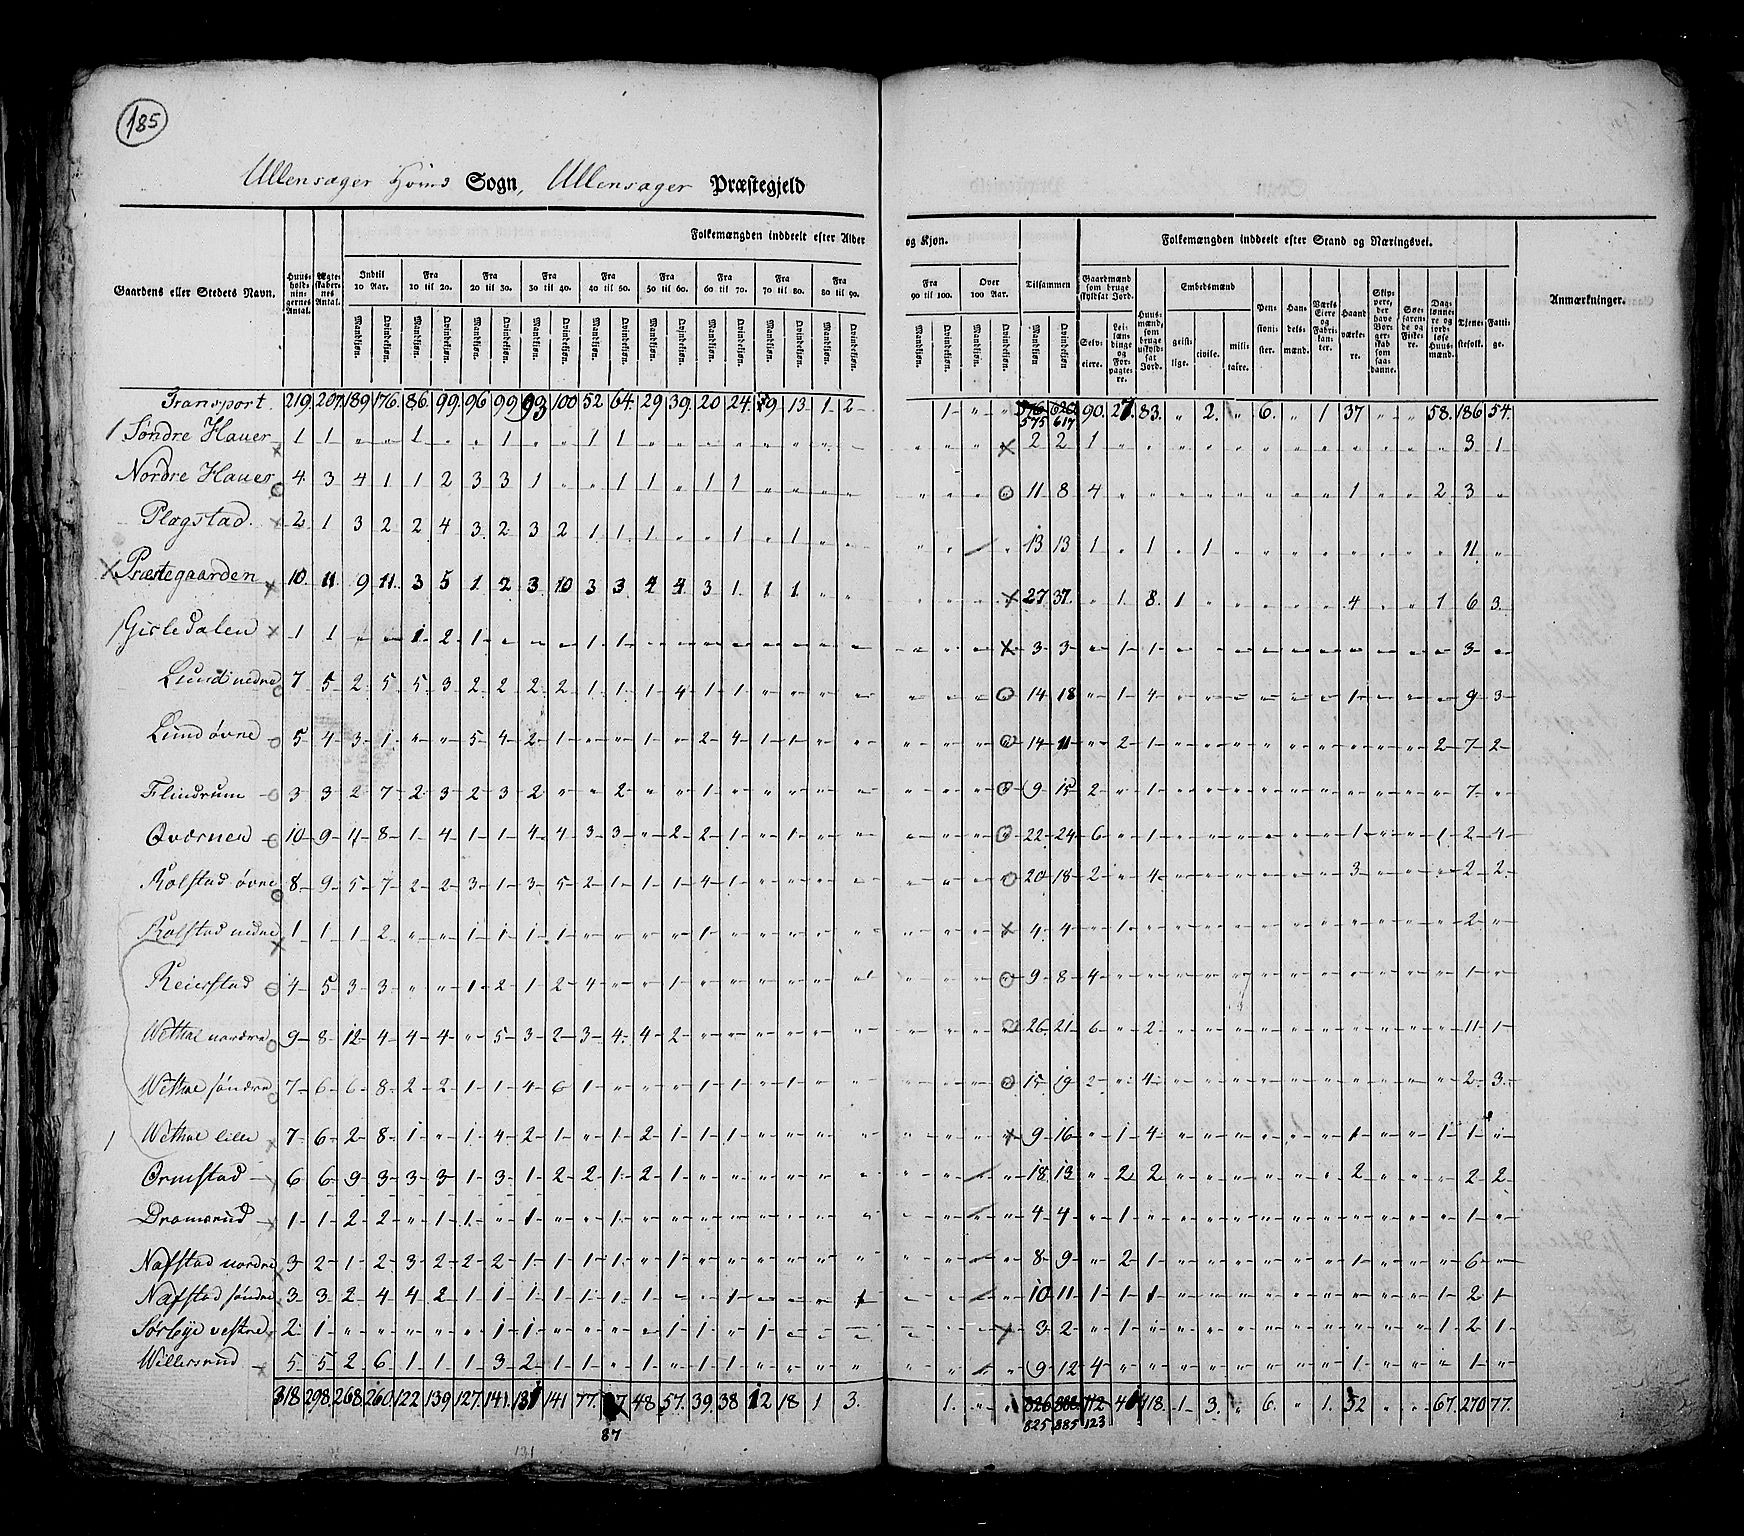 185
Ullensager Hovind Sogn, Ullensager Præstegjeld
Folkemængden inddeelt efter Alder og Kjøn. Folkemængden inddeelt efter Stand og Næringsvei.
Gaardens eller Stedets Navn. Huusholdningernes Antal. Ægteskabernes Antal. Indtil 10 Aar. Fra 10 til 20. Fra 20 til 30. Fra 30 til 40. Fra 40 til 50. Fra 50 til 60. Fra 60 til 70. Fra 70 til 80. Fra 80 til 90. Fra 90 til 100. Over 100 Aar. Tilsammen Gaardmænd som bruge skyldsat Jord. Huusmænd, som bruge uskyldsat Jord. Embedsmænd Pensionister. Handelsmænd. Værks Eiere og Fabrikanter. Haandværkere. Skippere, der have Borgerskab som saadanne. Søefarende og Fiskere. Daglønnere og jordløse Huusmænd. Tjenestefolk. Fattige. Anmærkninger.
Mandkjøn. Qvindekjøn. Mandkjøn. Qvindekjøn. Mandkjøn. Qvindekjøn. Mandkjøn. Qvindekjøn. Mandkjøn. Qvindekjøn. Mandkjøn. Qvindekjøn. Mandkjøn. Qvindekjøn. Mandkjøn. Qvindekjøn. Mandkjøn. Qvindekjøn. Mandkjøn. Qvindekjøn. Mandkjøn. Qvindekjøn. Mandkjøn Qvindekjøn Selveiere. Leilændinge og Forpagtere. geistlige. civile. militaire.
Transport. 219. 207. 189. 176. 86. 99. 96 99 93 100 52 64. 29 39. 20 24. 9 13. 1 2 1 " " 576 620 90. 27. 83. " 2. " 6. " 1 37 " " 58. 186 54.
575 617
/ Søndre Hauer × 1 1 " " 1 " " 1 " 1 1 " " " " " " " " " " " × 2 2 1 " " " " " " " " " " " " 3 1
Nordre Hauer o 4. 3 4 1 1 2 3 3 1 " " 1 1 " 1 1 " " " " " " " o 11 8 4 " " " " " " " " 1 " " 2 3 "
Plogstad. × 2 1 3 2 2 4 3 2 3 2 1 1 1 " " 1 " 1 " " " " / " 13 13 1 " 1 " 1 " " " " " " " " 11 "
× Præstegaarden × 10. 11. 9 11. 3 5 1. 2 3 10 3 3. 4 4. 3 1. 1 1 " " " " " × 27 37. " 1. 8. 1 " " " " " 4 " " 1 6 3.
/ Gisledalen × 1 1 " " 1 2 1 " " " 1 1 " " " " " " " " " " " × 3 3 " 1 1 " " " " " " " " " " 3 "
Lund nedre o 7 5 2 5 5 3 2 2 2 2 1 1 1 4 1 1 " " " " " " " o 14 18 " 1 4 " " " " " " 1 " " " 9 3
Lund øvre o 5 4 3 1 " " 5 4 2 1 " " 1 " 2 4 1 1 " " " " " o 14 11 " 2 1 " " " " " " " " " 2 7 2
Flindrum o 3 3 2 7 2 3 2 3 2 " " 2 " " 1 " " " " " " " " o 9 15 2 " 1 " " " " " " " " " " 7 "
Qværnen o 10 9 11 8 1 4 1 1 4 4 3 3 " 2 2 1 " 1 " " " " " o 22 24 6 " 1 " " " " " " 1 " " 1 2 4
Rolstad øvre o 8 9 5 7 2 2 3 1 3 5 2 1 1 1 4 1 " " " " " " " o 20 18 2 " 4 " " " " " " 3 " " " 2 2.
Rolstad nedre × 1 1 1 2. " " 1 1 1 1 " " " " 1 " " " " " " " " × 4 4 " 1 " " " " " " " " " " " 2 "
Reierstad o 4 5 3 3 " " 1 2 1 2 4 " " 1 " " " " " " " " " o 9 8 4 " " " " " " " " " " " " 1 "
Wethal nordre o 9 8 12 4 4 4 " 5 3 2 3 4 4 2 " " " " " " " " " o 26 21 6 " 2 " " " " " " " " " " 11 1
Wethal søndre o 7 6 6 8 2 2 1 1 4 6 1 " " " 1 1 " 1 " " " " " o 15 19 2 " 4 " " " " " " " " " " 2 3.
/ Wethal lille × 7 6 2 8 1 " 1 4 2 1 " 1 2 1 1 1 " " " " " " " × 9 16 " 1 4 " " " " " " 1 " " 1 1 "
Ormstad 6 6 9 3 3 3 1 3 1 2 2 1 2 1 " " " " " " " " / " 18 13 " 2 2 " " " " " " 2 " " " 2 2
Dramsrud × 1 1 2 2 " 1 1 " 1 " " 1 " " " " " " " " " " / " 4 4 " 1 " " " " " " " " " " " 1 "
Nafstad nordre × 3 2 1 2 3 2 2 2 1 1 1 1 " 1 " " " " " " " " / " 8 9 " 2 1 " " " " " " 1 " " 1 6 "
Nafstad søndre 3 3 2 4 4 2 1 1 1 1 1 1 1 " " 1 " " " 1 " " / " 10 11 1 1 1 " " " " " " 1 " " 1 2 1
Sørbye vestre 2 1 " " " " " 1 1 " " " " 1 1 " 1 " " " " " " × 3 2 " 1 " " " " " " " " " " 1 2 1
Willersrud × 5 5 2 6 1 1 1 3 2 1 1 " 1 " 1 1 " " " " " " / " 9 12 4 " " " " " " " " 1 " " " 1 "
318 298. 268. 260. 122 139 127. 141. 131 141 77. 48. 57. 39 38 12 18 1 3. 1. " " 826 888 112 41 118. 1 3. " 6. " 1. 52 " " 67. 270 77.
87 825 885 123
131